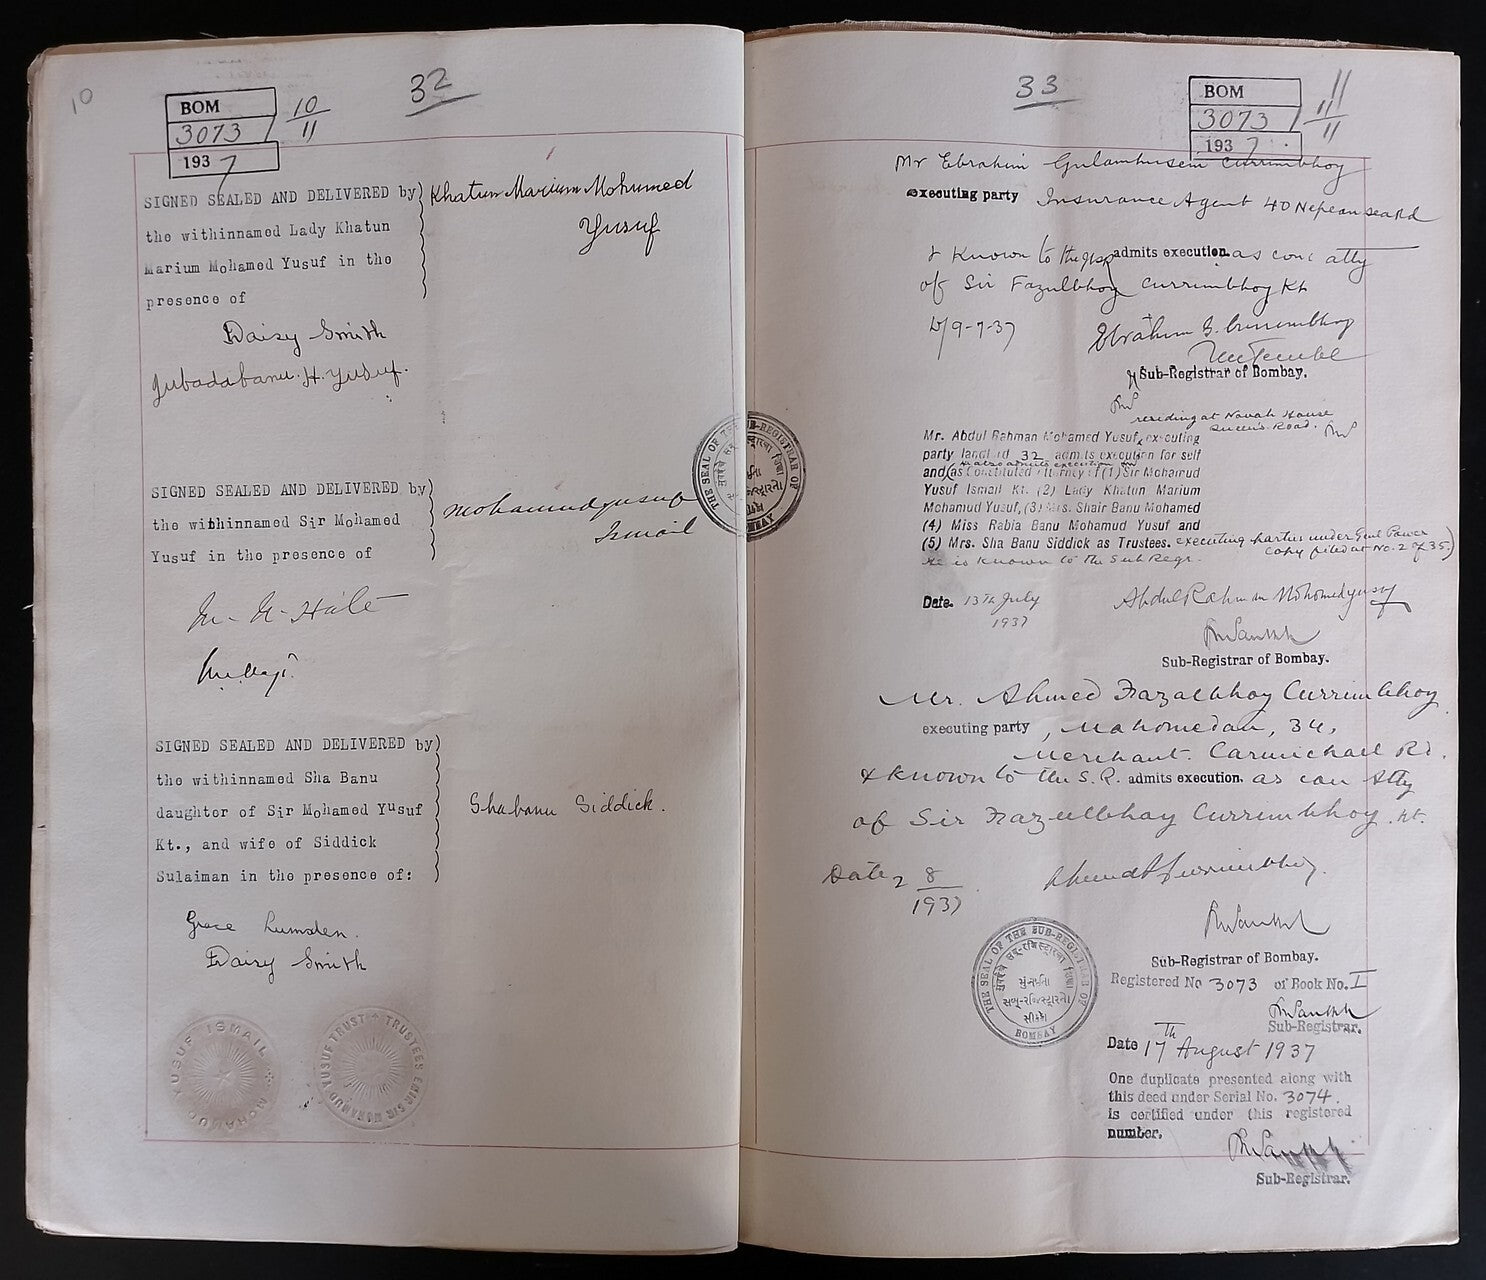 10
BOM
3073
1937
10
11
32
SIGNED SEALED AND DELIVERED by
the withinnamed Lady Khatun
Marium Mohamed Yusuf in the
presence of
Khatun Marium Mohumed
Yusuf
Daisy Smith
Zubadabanu. H. Yusuf.
SIGNED SEALED AND DELIVERED by
the withinnamed Sir Mohamed
Yusuf in the presence of
Mohamudyusuf
Ismail
SIGNED SEALED AND DELIVERED by
the withinnamed Sha Banu
daughter of Sir Mohamed Yusuf
Kt., and wife of Siddick
Sulaiman in the presence of:
Shabanu Siddick.
Grace Lumsden.
Daisy Smith
MOHAMUD YUSUF ISMAIL
YUSUF TRUST TRUSTEES SIR MOHAMUD
THE SEAL OF THE SUB-REGISTRAR OF
BOMBAY
33
BOM
3073
1937
11
11
Mr Ebrahim Gulamhusein Currimbhoy
executing party Insurance Agent 40 Nepean sea Rd
& Known to the admits execution as atty
of Sir Fazulbhoy Currimbhoy Kt
9-7-37
Ebrahim G. Currimbhoy
Sub-Registrar of Bombay.
residing at Navah House
Queen's Road.
Mr. Abdul Rahman Mohamed Yusuf executing
party 32 admits execution for self
and (as Constituted Attorney of (1) Sir Mohamud
Yusuf Ismail Kt. (2) Lady Khatun Marium
Mohamud Yusuf, (3) Mrs. Shair Banu Mohamed
(4) Miss Rabia Banu Mohamud Yusuf and
(5) Mrs. Sha Banu Siddick as Trustees. executing parties under Genl Power
Copy filed at No. 2 of 35)
He is known to the Sub Regr.
Date. 13th July
1937
Abdul Rahman Mohomedyusuf
Sub-Registrar of Bombay.
Mr. Ahmed Fazalbhoy Currimbhoy
executing party, Mahomedan, 34,
Merchant. Carmichael Rd.
& known to the S.R. admits execution. as con Atty
of Sir Fazulbhoy Currimbhoy. Kt.
Date 2 8
1937
Ahmed F Currimbhoy.
Sub-Registrar of Bombay.
Registered No 3073 of Book No. I
Sub-Registrar.
Date 17th August 1937
THE SEAL OF THE SUB-REGISTRAR OF
BOMBAY
One duplicate presented along with
this deed under Serial No. 3074.
is certified under this registered
number.
Sub-Registrar.